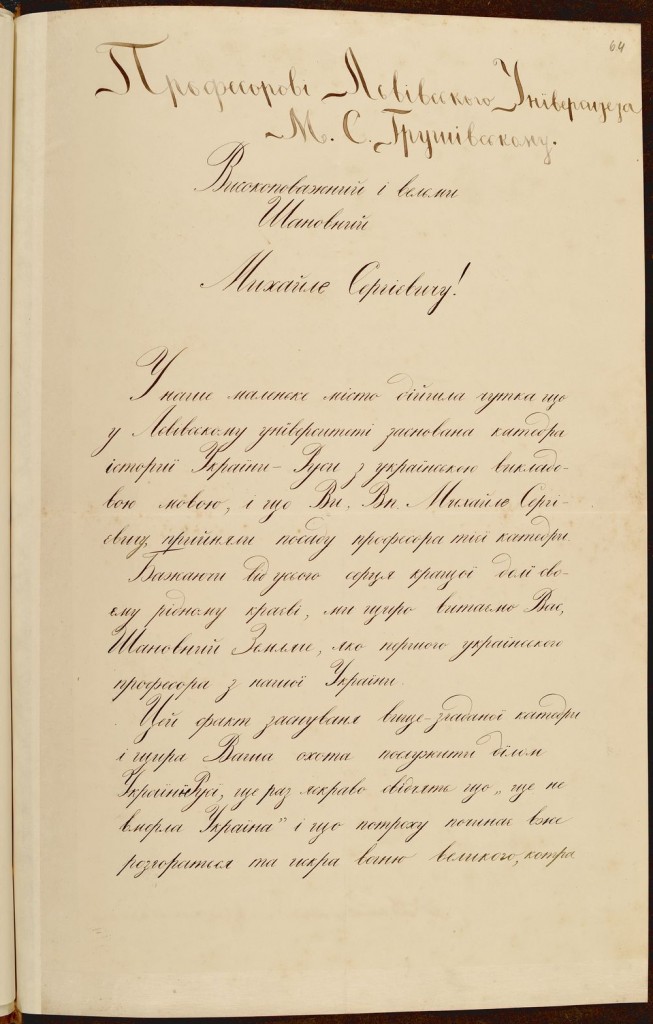 64
Професорові Лвівського Університета
М. С. Грушівському.
Високоповажний і велеми
Шановний
Михайле Сергієвичу!
У наше маленьке місто дійшла чутка що
у Львівському університеті заснована катедра
історії України-Руси з українською викладо-
вою мовою, і що Ви, Вп. Михайле Сергі-
євичу, прийняли посаду професора тієї катедри.
Бажаючи від усього серця кращої долі сво-
єму рідному краєві, ми щиро витаємо Вас,
Шановний Земляче, яко першого українського
професора з нашої України.
Цей факт заснування вище-згаданої катедри
і щира Ваша охота послужити ділом
Україні Русі, ще раз яскраво свідчять що „ще не
вмерла Україна" і що потроху починає вже
розгоратися та искра вогню великого, котра